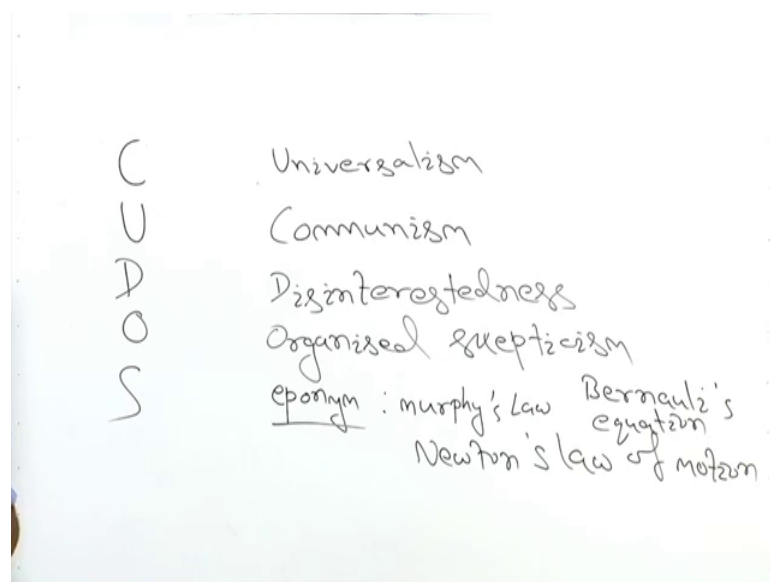 C Universalism
U Communism
D Disinterestedness
O Organised skepticism
S eponym : murphy's Law Bernauli's
equation
Newton's law of motion